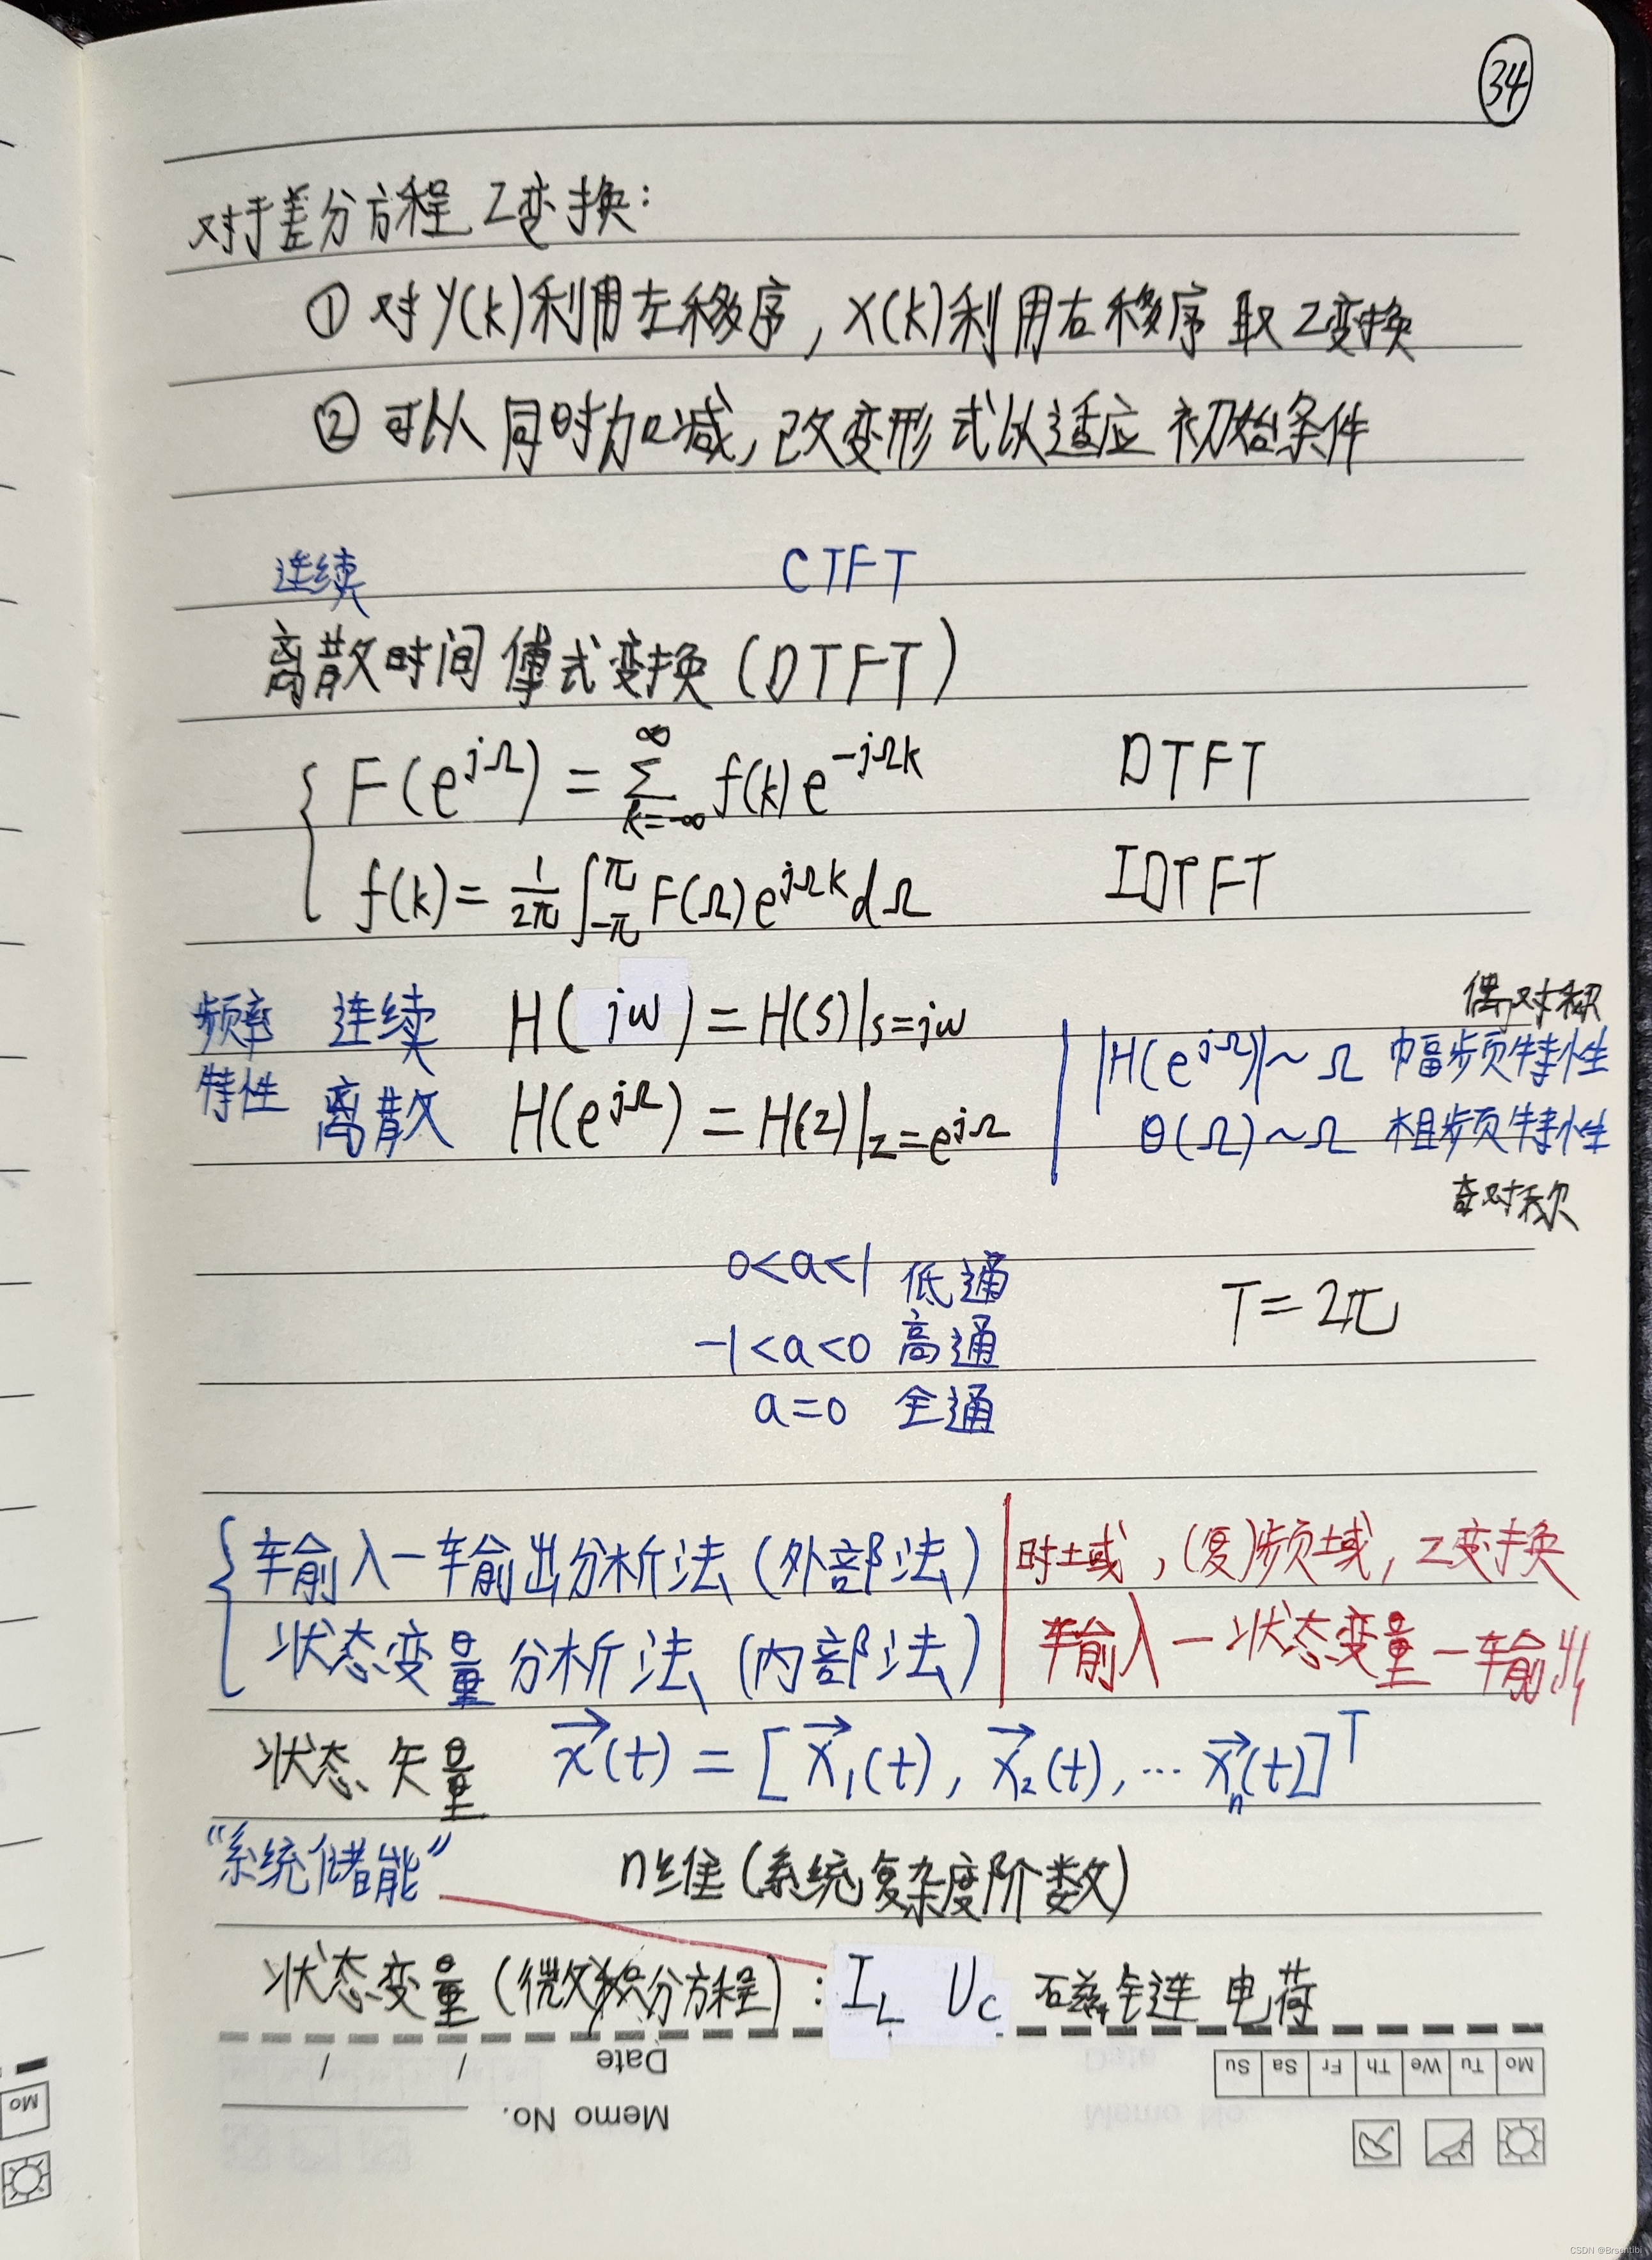 34
对于差分方程 Z变换:
① 对 y(k)利用左移序, x(k)利用右移序 取Z变换
② 可以 同时加减, 改变形式以适应 初始条件
连续 CTFT
离散时间 傅式变换 (DTFT)
F(e^{jΩ}) = ∑_{k=-∞}^{∞} f(k)e^{-jΩk} DTFT
f(k) = 1/2π ∫_{-π}^{π} F(Ω)e^{jΩk}dΩ IDTFT
偶对称
频率 连续 H(jw) = H(s)|s=jw
|H(e^{jΩ})|~Ω 幅频特性
特性 离散 H(e^{jΩ}) = H(z)|z=e^{jΩ}
θ(Ω)~Ω 相频特性
奇对称
0<a<1 低通 T=2π
-1<a<0 高通
a=0 全通
输入-输出分析法 (外部法) 时域, (复)频域, Z变换
状态变量分析法 (内部法) 输入-状态变量-输出
状态矢量 x⃗(t) = [x⃗₁(t), x⃗₂(t), … x⃗ₙ(t)]^T
“系统储能” n维 (系统复杂度阶数)
状态变量 (微分方程): I_L U_C 磁链 电荷
Date / /
Memo No.
Mo Tu We Th Fr Sa Su
Mo
CSDN @Brsentibi